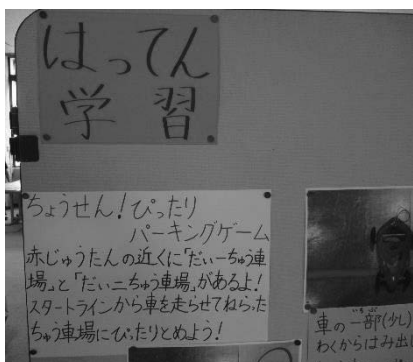 はってん
学習
ちょうせん！ぴったり
パーキングゲーム
赤じゅうたんの近くに「だいーちゅう車
場」と「だい二ちゅう車場」があるよ！
スタートラインから車を走らせてねらった
ちゅう車場にぴったりとめよう！
車の一部(少し
わくからはみ出